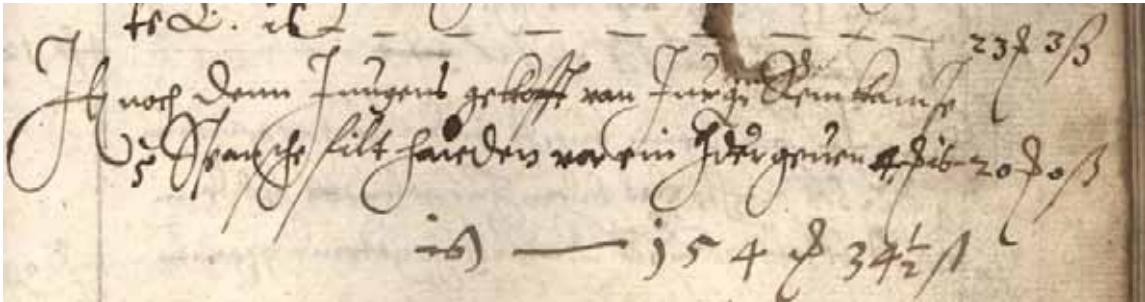 te L. is — — — — — — — — 23 ₰ 3 ß
It noch denn Jungens gekofft van Jurgē Remkamſe
5 Spanſche filt haieden vor ein Jder geuen 4 ₰ is 20 ₰ 0 ß
is — 154 ₰ 34½ ß